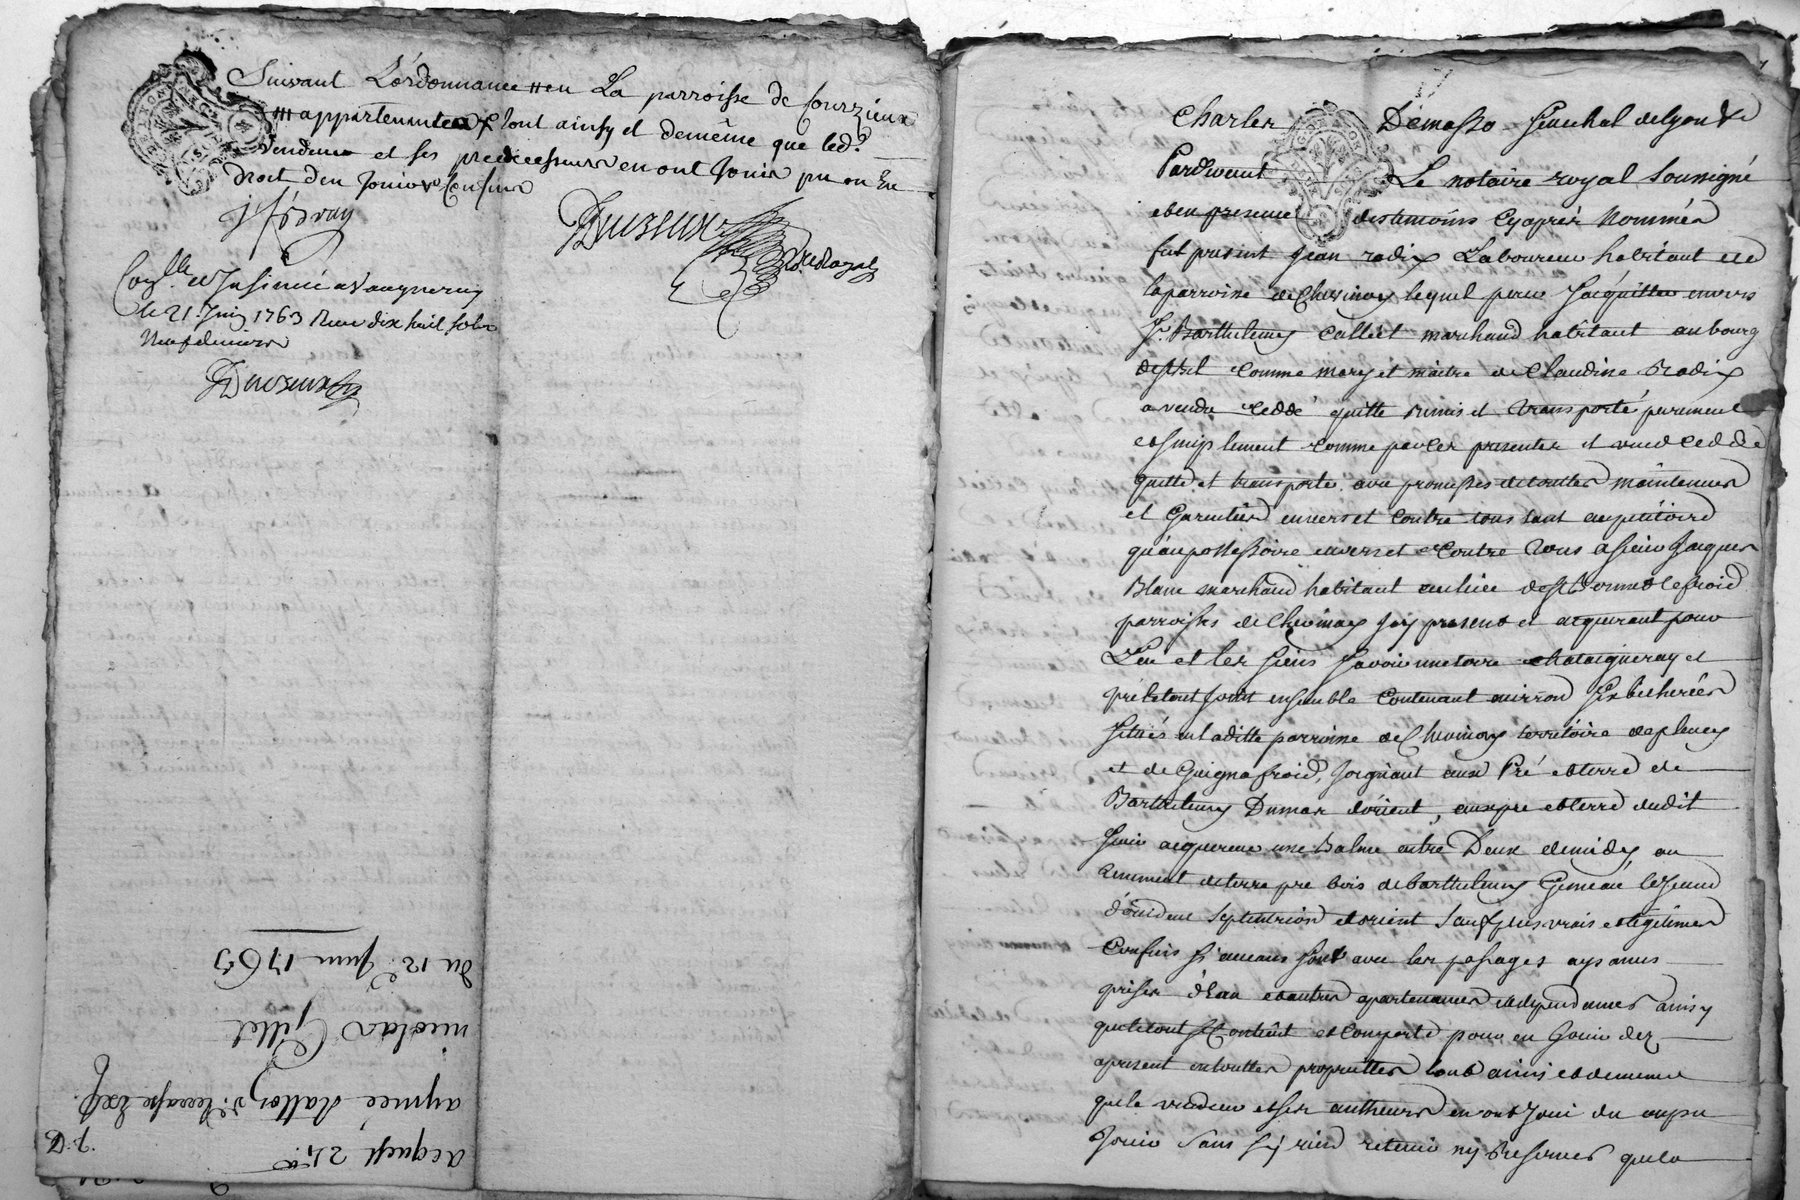 Suivant L'érdonnance en La parroisse de Courzieux
appartenante tout ainsy et demême que led.
vendeur et ses predecesseurs en ont Jouir pu ou Eu
Droit d'en Jouir
Duvseux
Con.lle et Insinué a Vaugneray
le 21 Juin 1763 Recu dix huit sols
Neuf deniers
du 12e Juin 1763
nicolas Gillet
aymée
acquest
Charles Demasso Senechal de Lyon &
Pardevant Le notaire royal soussigné
et en presence des temoins Cy après Nommés
fut present Jean radix Laboureur habitant de
la parroisse de Chevinay lequel pour Jacquitter envers
Sr. Barthelemy Collet marchand habitant au bourg
comme mary et maitre de Claudine Radix
a vendu ceddé quitte remis et transporté purement
et simplement comme par ces presentes il vend cedde
quitte et transporte avec promesses de toutes maintenues
et Garenties envers et contre tous tant au petitoire
qu'au possessoire envers et contre tous a sieur Jacques
Blanc marchand habitant au lieu de st Bonnet le froid
parroisse de Chevinay Icy present et acquerant pour
Lui et les siens savoir une terre chataigneray et
pré le tout joint ensemble contenant environ six bicherées
situés en laditte parroisse de Chevinay territoire de
et de Guignafroid, Joignant aux Pré et terre de
Barthelemy Dumas d'orient, aux pre et terre dudit
sieur acquereur une Balme entre Deux de midy, au
tenement de terre pre bois de barthelemy le Jeune
d'occident septentrion et orient sauf plus vrais et legitimes
Confins si aucuns sont avec les passages aysances
prises d'eau et autres apartenances et dependances ainsy
que le tout se Contient et comporte pour en Jouir dez
apresent en toutte propriettes tout ainsi et de meme
que le vendeur et ses autheurs en ont Joui du ou pu
Jouir sans sy rien retenir ny Reserver que la